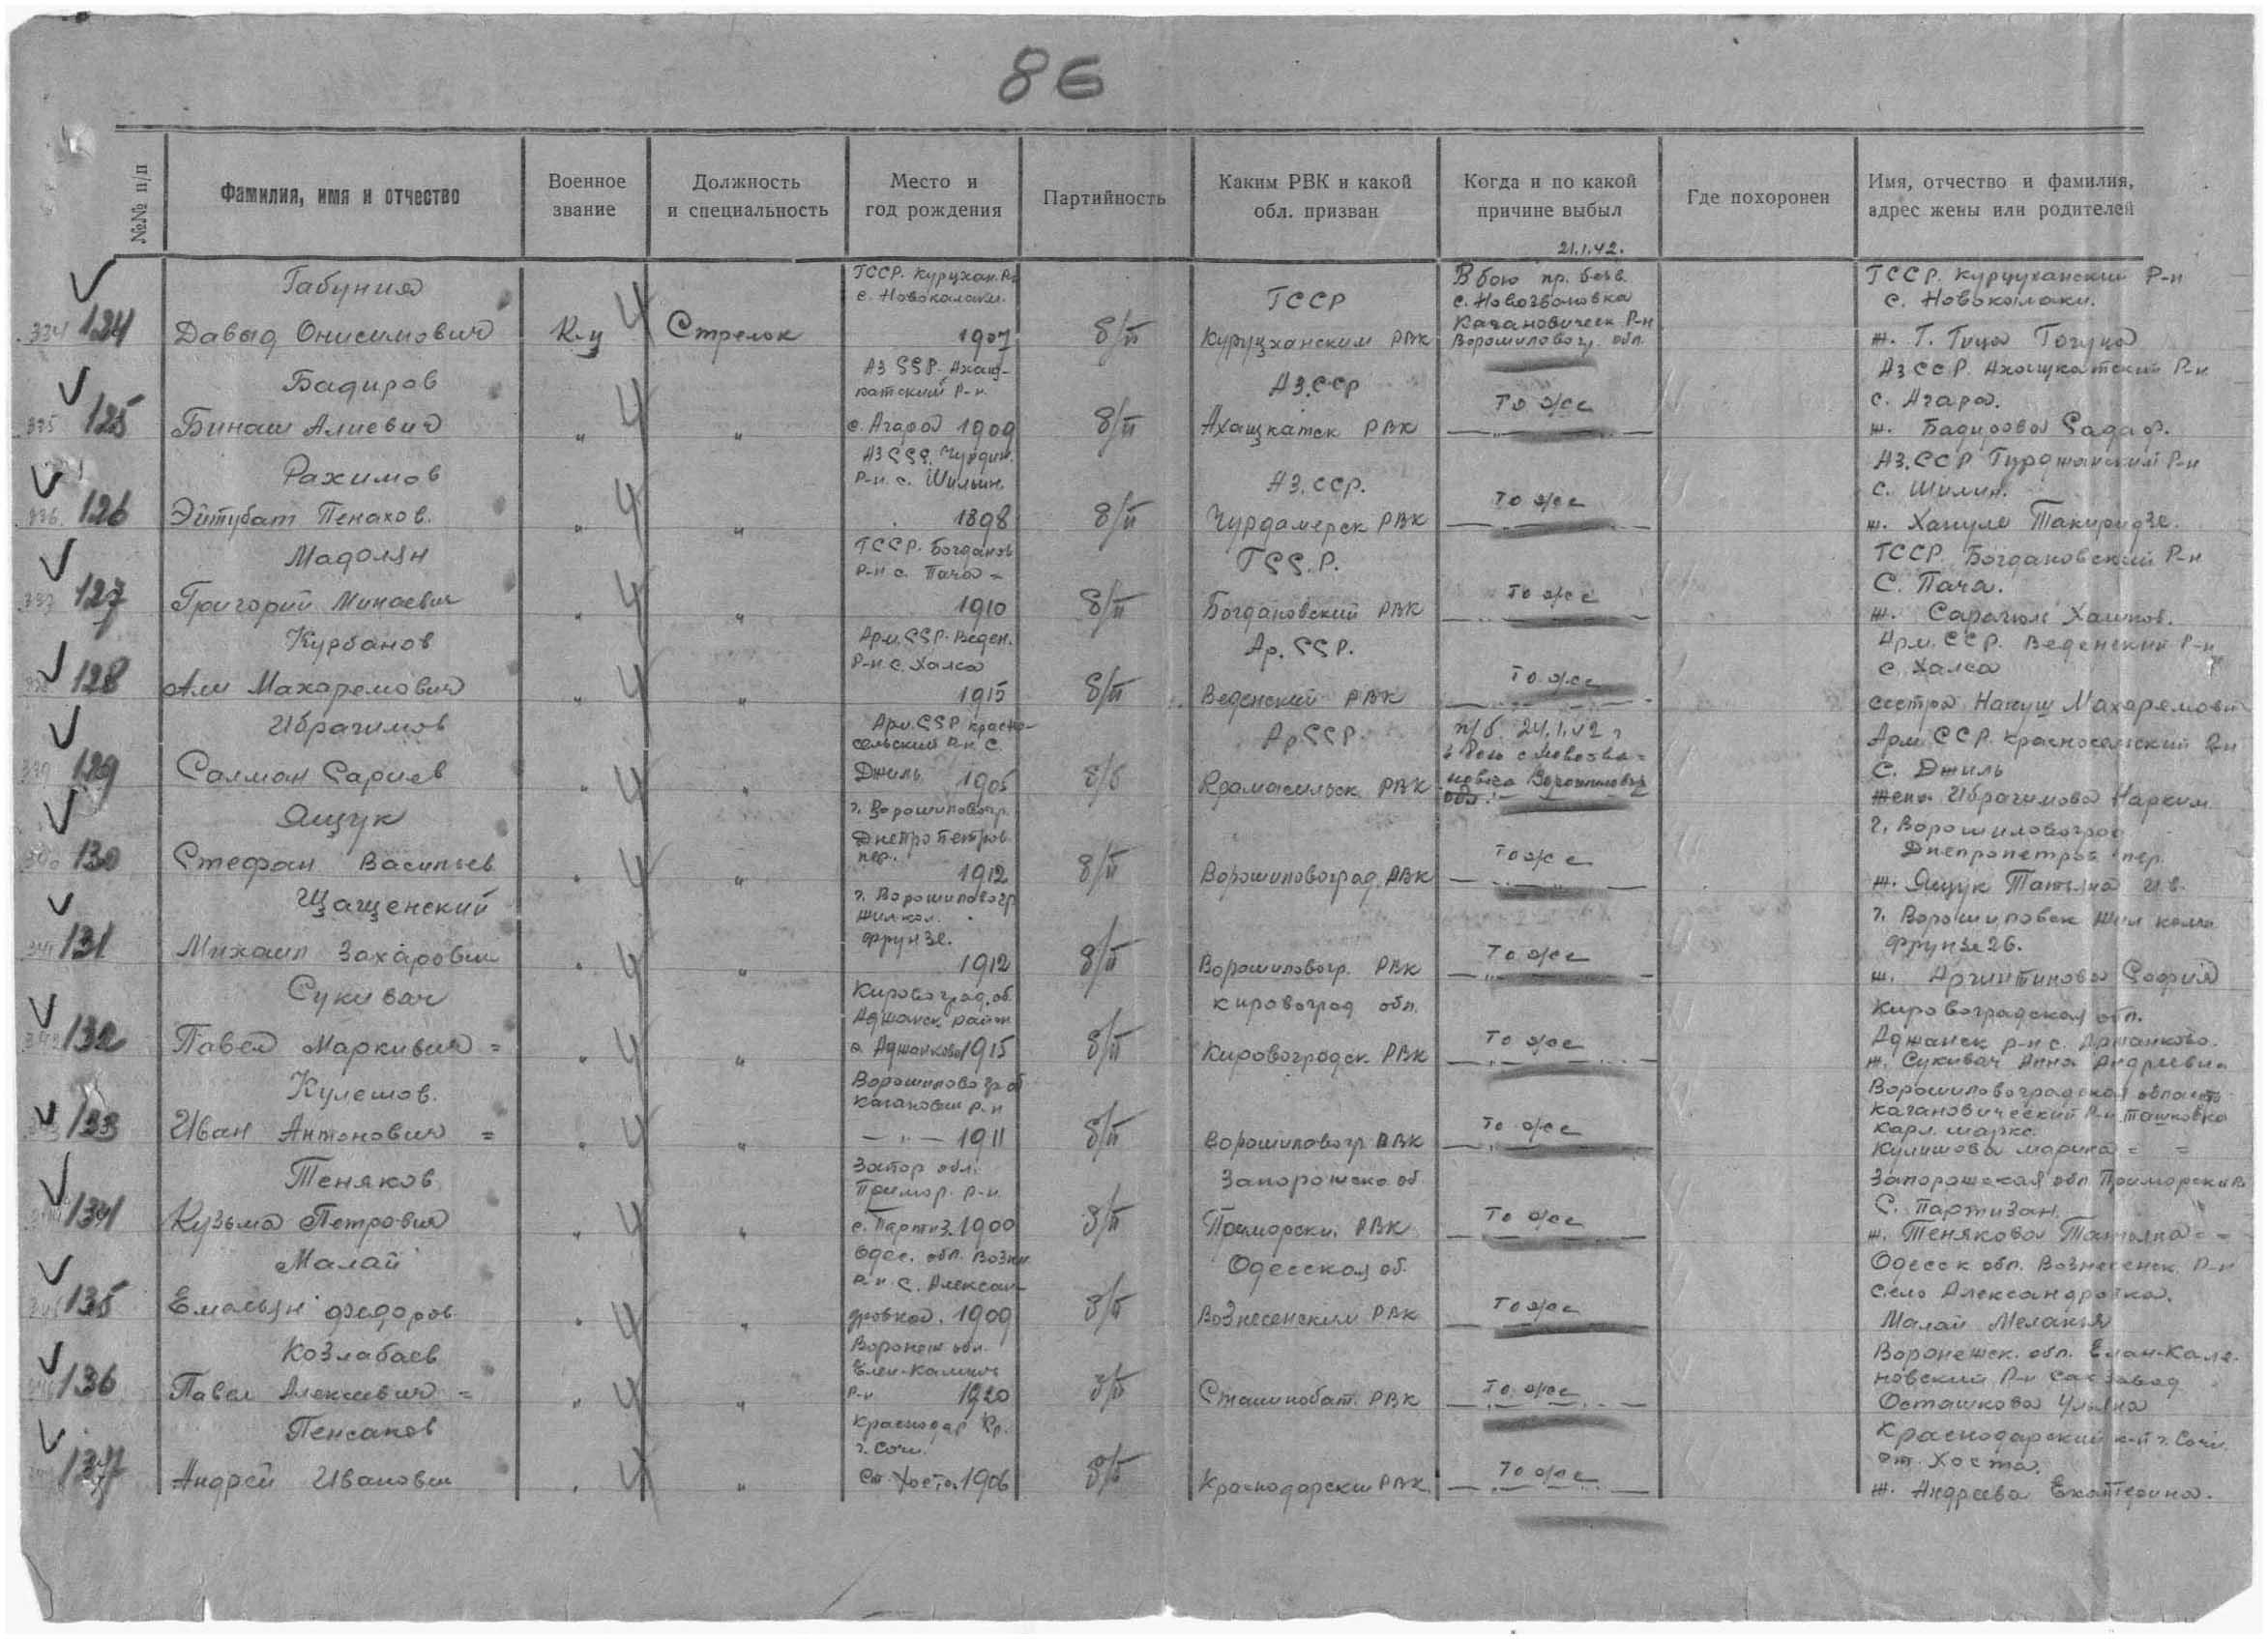 86
№№ п/п
Фамилия, имя и отчество
Военное звание
Должность и специальность
Место и год рождения
Партийность
Каким РВК и какой обл. призван
Когда и по какой причине выбыл
Где похоронен
Имя, отчество и фамилия, адрес жены или родителей
21.1.42.
334 124
Габуния
Давыд Онисимович
К-ц
Стрелок
ГССР. Курцхан. Р-н
с. Новокалаки.
1907
б/п
ГССР
Куруцханским РВК
В бою пр. безв.
с. Новозвановка
Кагановическ Р-н
Ворошиловогр. обл.
ГССР. Курцуханский Р-н
с. Новокалаки.
ж. Г. Тица Гогуца
335 125
Бадиров
Бинаш Алиевич
" "
Аз ССР. Ахащ-
катский Р-н.
с. Агара 1909
б/п
АЗ.ССР
Ахащкатск РВК
То же
АзССР. Ахащкатский Р-н
с. Агара.
ж. Бадирова Садаф.
336 126
Рахимов
Эйтубат Пенахов.
" "
Р-н. с. Шильин.
1898
б/п
АЗ.ССР.
Чурдамерск РВК
То же
АЗ.ССР Гурджанский Р-н
с. Шилин.
ж. Хануле Такиридзе.
337 127
Мадолян
Григорий Минаевич
" "
ГССР. Богданов
Р-н с. Пача
1910
б/п
ГССР.
Богдановский РВК
То же
ГССР Богдановский Р-н
С. Пача.
ж. Сарагюл Хашков.
128
Курбанов
Али Махаремович
" "
Арм.ССР. Веден.
Р-н с. Халса
1915
б/п
Ар. ССР.
Веденский РВК
То же
Арм. ССР. Веденский Р-н
с. Халса
сестра Нануш Махаремович
339 129
Ибрагимов
Салман Сариев
" "
Арм.ССР красно-
сельский Р-н С.
Джиль 1905
б/б
Ар ССР.
Крамасильск РВК
п/б. 24.1.42 г
Арм ССР. Красносельский Р-н
С. Джиль
жена Ибрагимова Нарким.
340 130
Ящук
Стефан Васильев
" "
г. Ворошиловогр.
Днепропетров.
пер.
1912
б/п
Ворошиловоград. РВК
То же
г. Ворошиловоград
Днепропетров пер.
ж. Ящук Татьяна Ив.
341 131
Щащенский
Михаил Захарович
" "
г. Ворошиловогр
жил кол.
Фрунзе.
1912
б/п
Ворошиловогр. РВК
То же
г. Ворошиловск жил колон
Фрунзе 26.
ж. Аргинтинова София
342 132
Сукивач
Павел Маркивич =
" "
Кировоград. об.
Аджамск район
с Аджамково 1915
б/п
Кировоград обл.
Кировоградск. РВК
То же
Кировоградская обл.
Аджанск р-н с. Аджанково.
ж. Сукивач Анна Андреевна
133
Кулешов.
Иван Антонович =
" "
Ворошиловогр об
Каганович р-н
— " — 1911
б/п
Ворошиловогр. РВК
То же
Ворошиловоградская область
Кагановический Р-н Ташковка
Карл. маркс.
Кулишова Марина = =
134
Теняков
Кузьма Петрович
" "
Запор обл.
Примор. р-н
с. Партиз. 1900
б/п
Запорожско. об
Приморски. РВК
То же
Запорожская обл Приморский
С. Партизан.
ж. Тенякова Татьяна = =
135
Малай
Емельян Федоров
" "
Одес. обл. Возн
Р-н. С. Алексан
дровка. 1909
б/п
Одесская об.
Вознесенским РВК
То же
Одесск обл. Вознесенск. Р-н
Село Александровка.
Малай Меланья
136
Козлабаев
Павел Алексеевич =
" "
Воронеж обл.
Р-н 1920
б/п
Сталинобат. РВК
То же
Воронежск. обл. Елан-Кале-
новский Р-н Сах завод
Осташкова Ульяна
137
Пенсаков
Андрей Иванович
" "
Краснодар Кр.
г. Сочи.
Ст. Хоста. 1906
б/п
Краснодарским РВК
То же
Краснодарский к-й г. Сочи
ст. Хоста.
ж. Андреева Екатерина.